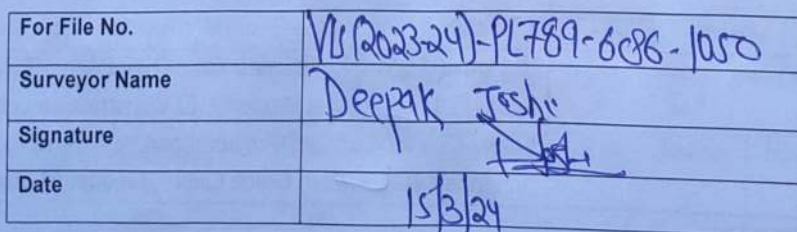 For File No. VIS(2023-24)-PL789-686-1050
Surveyor Name Deepak Joshi
Signature
Date 15/3/24